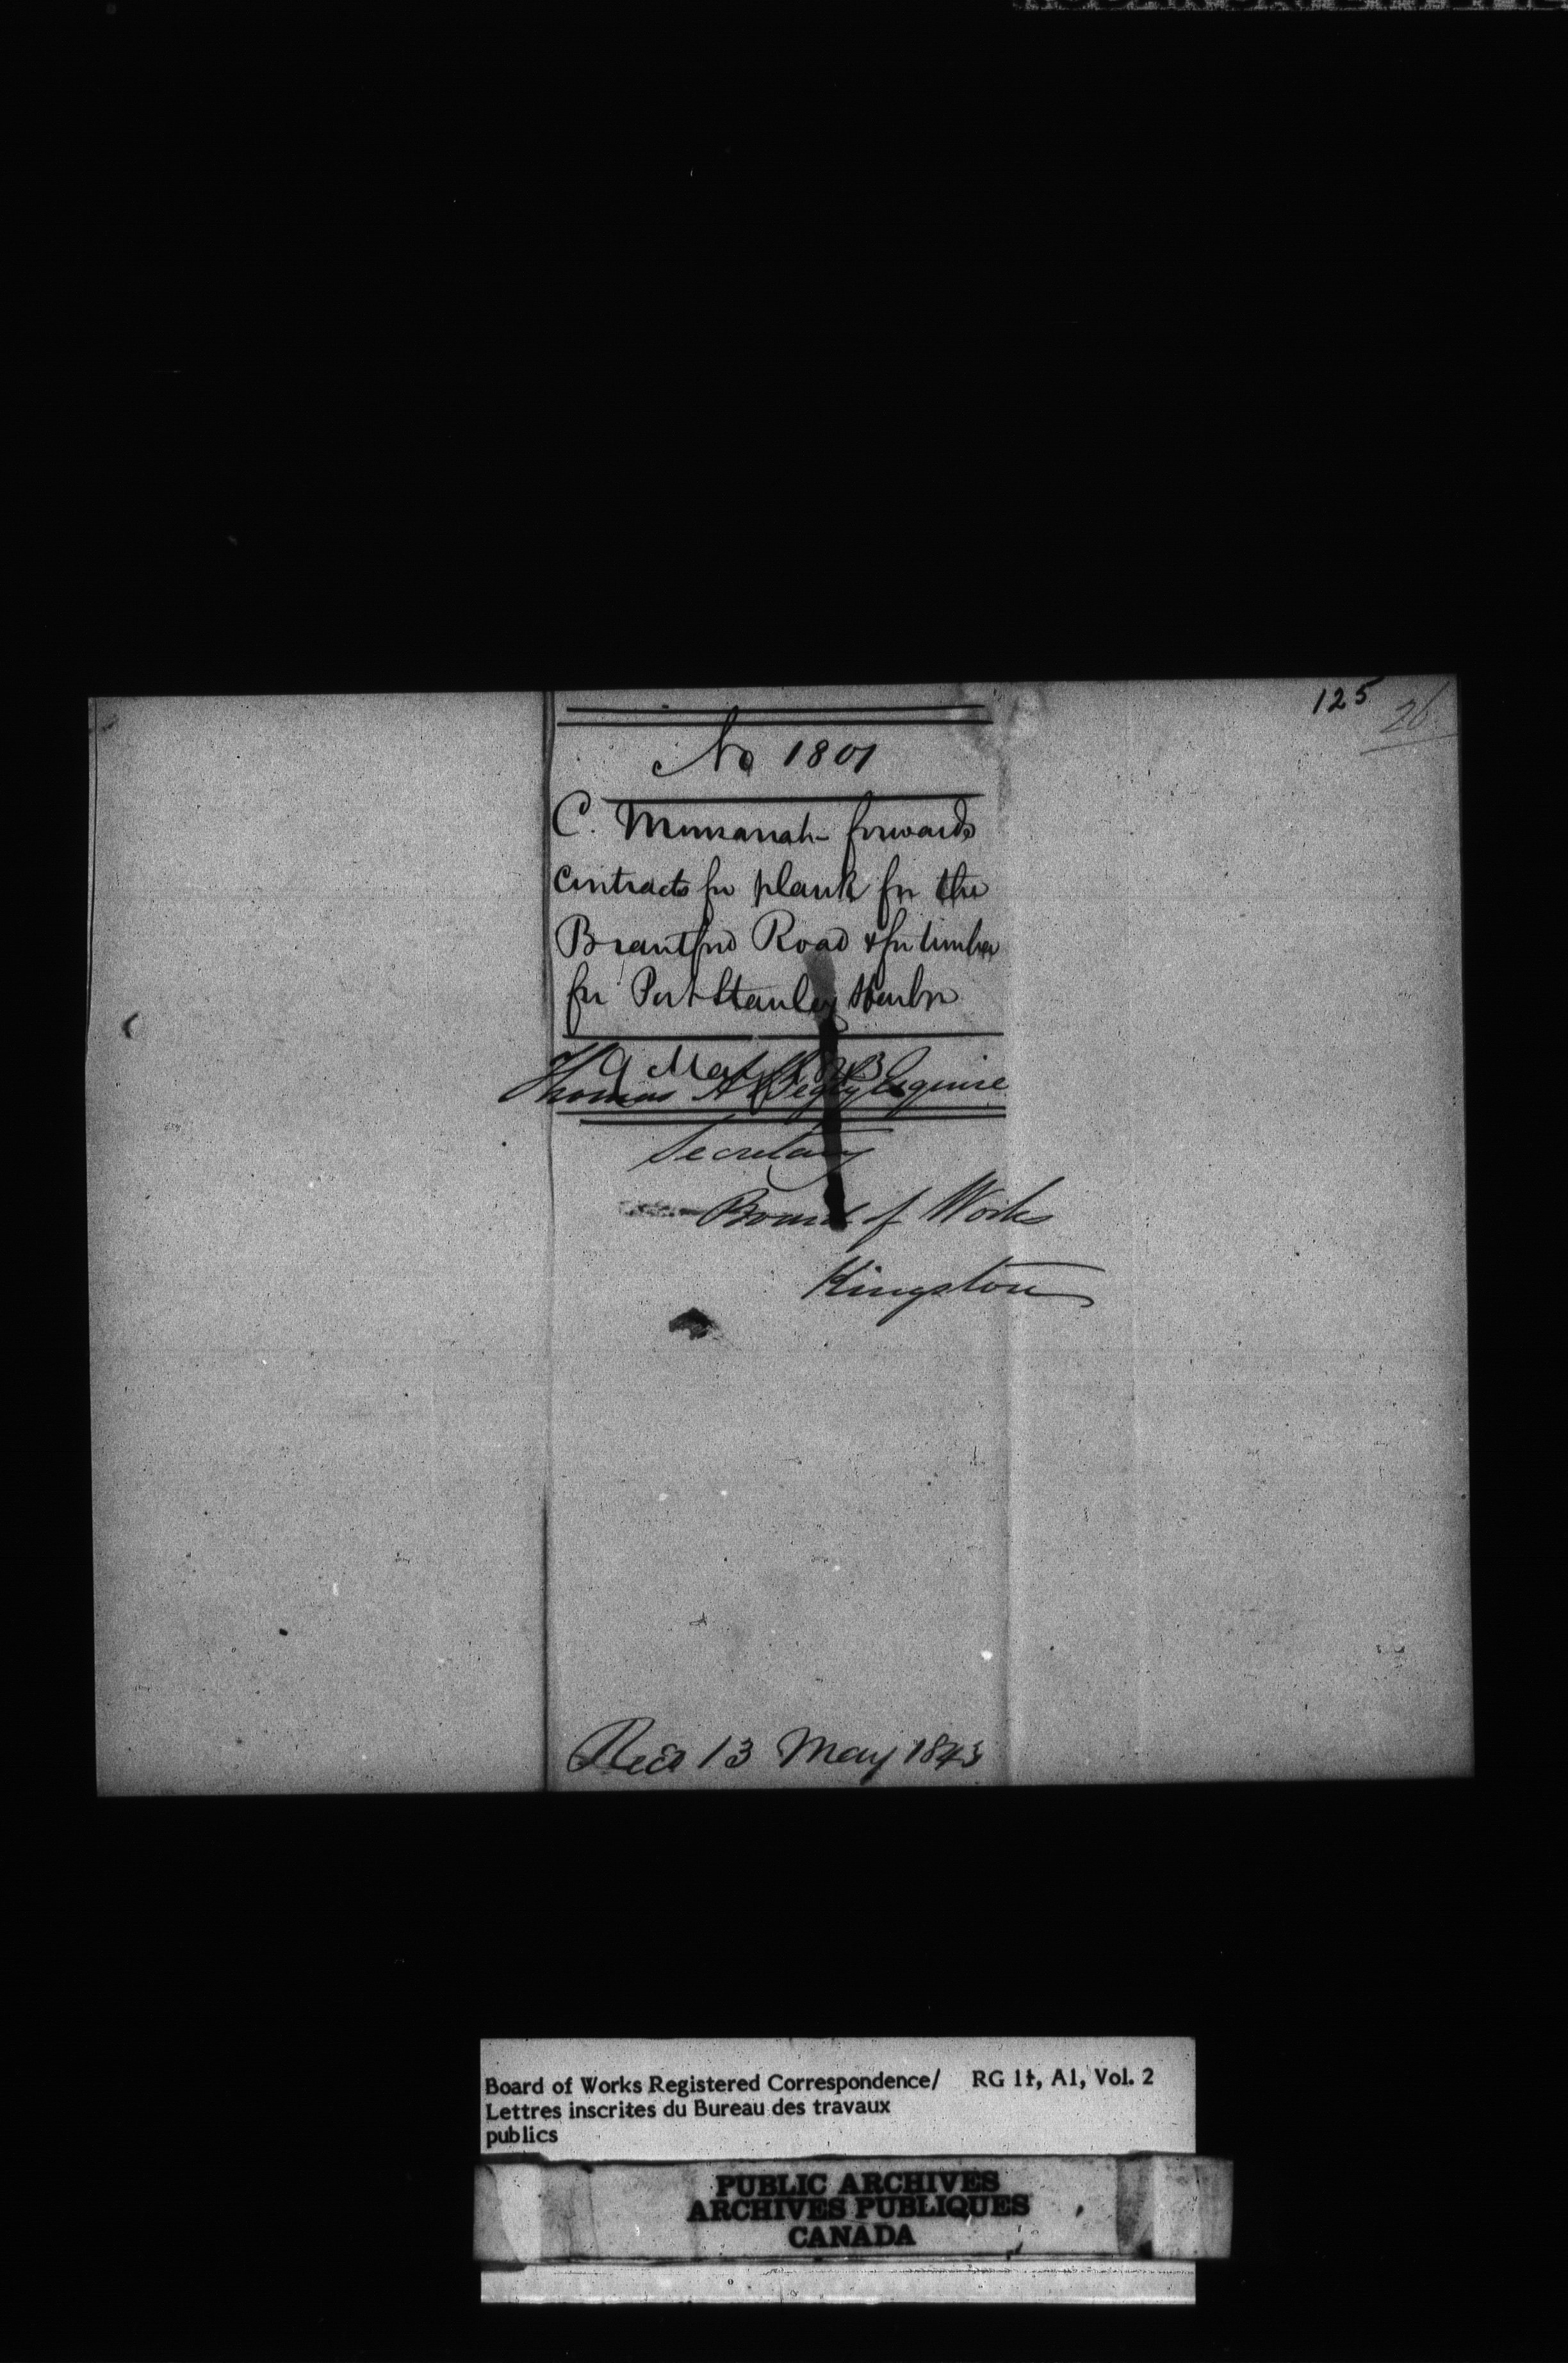 125
26
No 1801
C. Monsarrat forwards
contracts for plank for the
Brantford Road & for timber
for Port Stanley Harbor
9 May 1843
Thomas A Begly Esquire
Secretary
Board of Works
Kingston
Recd 13 May 1843
Board of Works Registered Correspondence/ RG 11, A1, Vol. 2
Lettres inscrites du Bureau des travaux
publics
PUBLIC ARCHIVES
ARCHIVES PUBLIQUES
CANADA